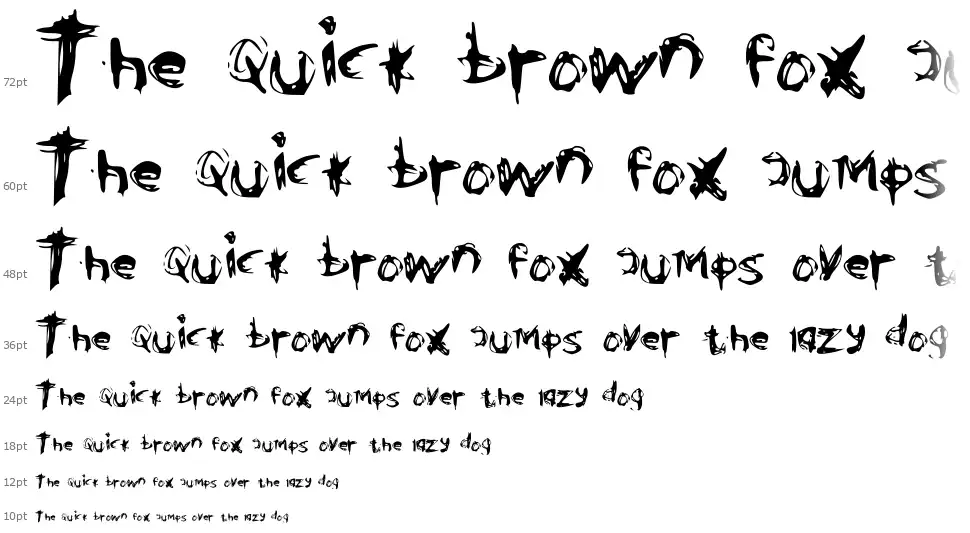 72pt The Quick brown fox Ju
60pt The Quick brown fox Jumps
48pt The Quick brown fox Jumps over t
36pt The Quick brown fox Jumps over the lazy dog
24pt The Quick brown fox Jumps over the lazy dog
18pt The Quick brown fox Jumps over the lazy dog
12pt The Quick brown fox Jumps over the lazy dog
10pt The Quick brown fox Jumps over the lazy dog